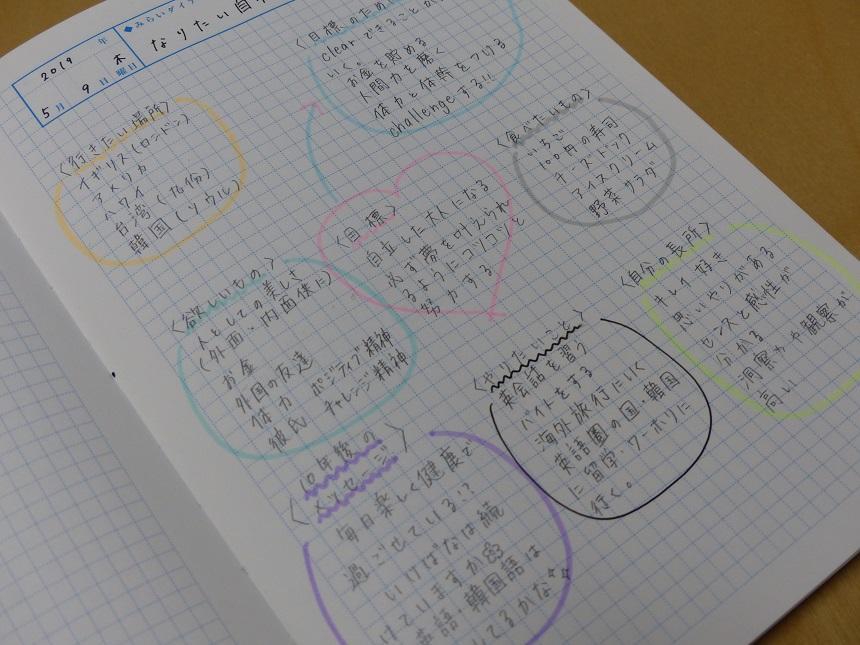 ◆みらいダイア
2019 年
5月 9日 木曜日
なりたい自
〈目標のため
clearできることか
いく。
お金を貯める
人間力を磨く
体力と体幹をつける
challengeする!!
〈行きたい場所〉
イギリス(ロンドン)
アメリカ
ハワイ
台湾(九份)
韓国(ソウル)
〈食べたいもの〉
いちご
100円の寿司
チーズドック
アイスクリーム
野菜サラダ
〈目標〉
自立した大人になる
必ず夢を叶えられ
るようにコツコツと
努力する
〈自分の長所〉
キレイ好き
思いやりがある
センスと感性が
分かる
洞察力や観察が
高い
〈欲しいもの〉
人としての美しさ
(外面・内面供に)
お金
外国の友達
体力 ポジティブ精神
彼氏 チャレンジ精神
〈やりたいこと〉
英会話を習う
バイトをする
海外旅行にいく
英語圏の国・韓国
に留学・ワーホリに
行く。
10年後の
〈メッセージ〉
毎日楽しく健康で
過ごせている!?
いけばなは続
けていますか
英語・韓国語は
してるかな